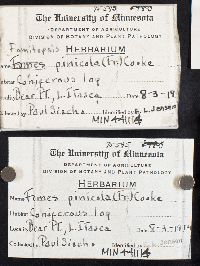 The University of Minnesota
DEPARTMENT OF AGRICULTURE
DIVISION OF BOTANY AND PLANT PATHOLOGY
Fomitopsis HERBARIUM
Name Fomes pinicola (Fr.) Cooke
Habitat Coniferous log
Locality Bear Pt, L. Itasca Date 8-3-19
Collected by Paul Identified by L. Jensen
MIN 44114
The University of Minnesota
DEPARTMENT OF AGRICULTURE
DIVISION OF BOTANY AND PLANT PATHOLOGY
HERBARIUM
Name Fomes pinicola (Fr.) Cooke
Habitat Coniferous log
Locality Bear Pt, L. Itasca Date 8-3-19
Collected by Paul Identified by
MIN 44114